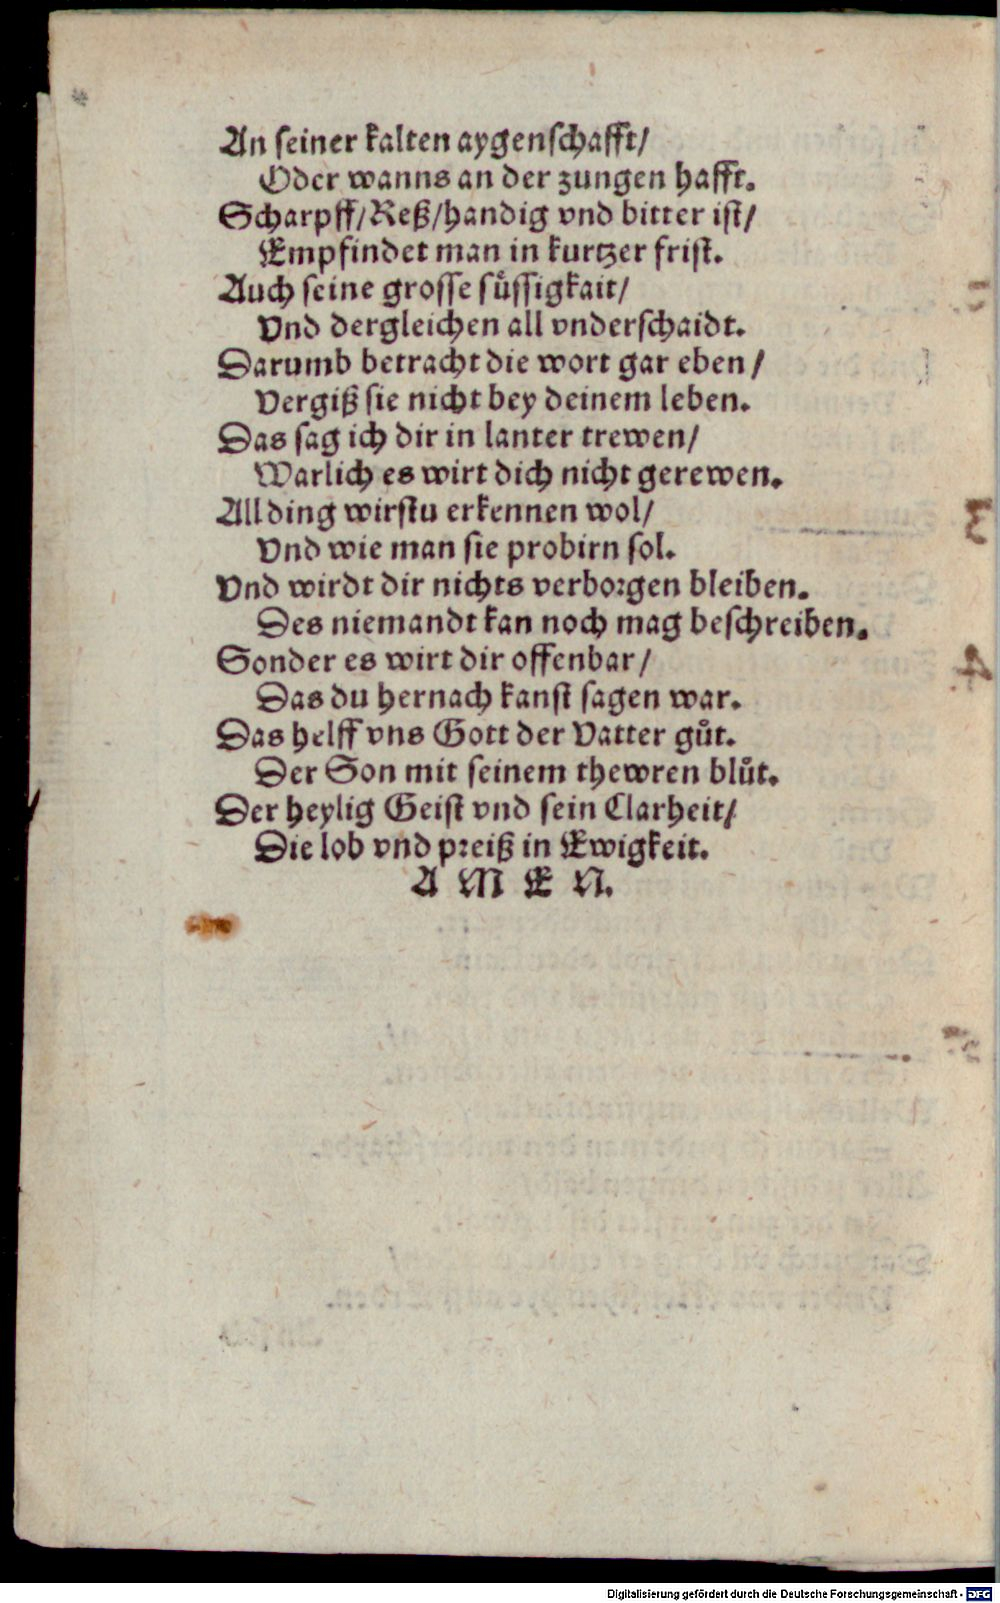 An seiner kalten aygenschafft/
Oder wanns an der zungen hafft.
Scharpff/Reß/handig vnd bitter ist/
Empfindet man in kurtzer frist.
Auch seine grosse süssigkait/
Vnd dergleichen all vnderschaidt.
Darumb betracht die wort gar eben/
Vergiß sie nicht bey deinem leben.
Das sag ich dir in lanter trewen/
Warlich es wirt dich nicht gerewen.
All ding wirstu erkennen wol/
Vnd wie man sie probirn sol.
Vnd wirdt dir nichts verborgen bleiben.
Des niemandt kan noch mag beschreiben.
Sonder es wirt dir offenbar/
Das du hernach kanst sagen war.
Das helff vns Gott der Vatter gůt.
Der Son mit seinem thewren blůt.
Der heylig Geist vnd sein Clarheit/
Die lob vnd preiß in Ewigkeit.
A M E N.
3
4
Digitalisierung gefördert durch die Deutsche Forschungsgemeinschaft - DFG